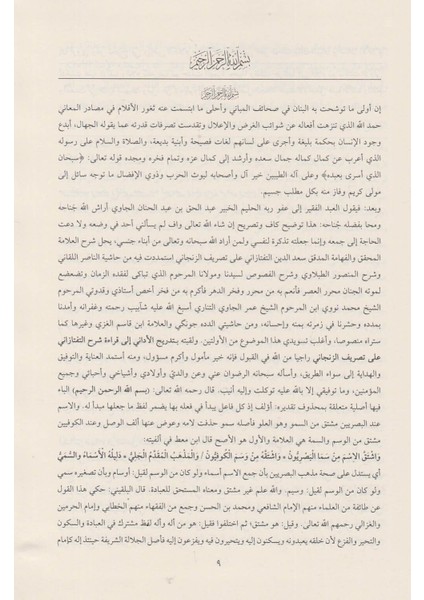 بسم الله الرحمن الرحيم
بسم الله الرحمن الرحيم
إن أولى ما توشحت به البنان في صحائف المباني وأحلى ما ابتسمت عنه ثغور الأقلام في مصادر المعاني
حمد الله الذي تنزهت أفعاله عن شوائب الغرض والإعلال وتقدست تصرفات قدرته عما يقوله الجهال، أبدع
وجود الإنسان بحكمة بليغة وأجرى على لسانهم لغات فصيحة وأبنية بديعة، والصلاة والسلام على رسوله
الذي أعرب عن كمال كماله جمال سعده وأرشد إلى كمال عزه وتمام فخره ومجده قوله تعالى: ﴿سبحان
الذي أسرى بعبده﴾ وعلى آله الطيبين خير آل وأصحابه ليوث الحرب وذوي الإفضال ما توجه سائل إلى
مولى كريم وفاز منه بكل مطلب جسيم.
وبعد: فيقول العبد الفقير إلى عفو ربه الحليم الخبير عبد الحق بن عبد الحنان الجاوي أراش الله جناحه
ومحا بفضله جُناحه: هذا توضيح كاف وتصريح إن شاء الله تعالى واف لم يسألني أحد في وضعه ولا دعت
الحاجة إلى جمعه وإنما جعلته تذكرة لنفسي ولمن أراد الله سبحانه وتعالى من أبناء جنسي، يحل شرح العلامة
المحقق والفهامة المدقق سعد الدين التفتازاني على تصريف الزنجاني استمددت فيه من حاشية الناصر اللقاني
وشرح المنصور الطبلاوي وشرح الفصوص لسيدنا ومولانا المرحوم الذي تباكى لفقده الزمان وتضعضع
لموته الجنان محرر العصر فأنعم به من محرر وفخر الدهر فأكرم به من فخر أخص أستاذي وقدوتي المرحوم
الشيخ محمد نووي ابن المرحوم الشيخ عمر الجاوي التناري أسبغ الله عليه شآبيب رحمته وغفرانه وأمدنا
بمدده وحشرنا في زمرته بمنه وإحسانه، ومن حاشيتي الدده جونكي والعلامة ابن قاسم الغزي وغيرها كما
ستراه منصوصا، وأغلب تسويدي هذا الموضوع من الأولتين. ولقبته بـتدريج الأداني إلى قراءة شرح التفتازاني
على تصريف الزنجاني راجيا من الله في القبول فإنه خير مأمول وأكرم مسؤول، ومنه أستمد العناية والتوفيق
والهداية إلى سواء الطريق، وأسأله سبحانه الرضوان عني وعن والدي وأولادي وأشياخي وأحبابي وجميع
المؤمنين، وما توفيقي إلا بالله عليه توكلت وإليه أنيب. قال رحمه الله تعالى: (بسم الله الرحمن الرحيم) الباء
فيها أصلية متعلقة بمحذوف تقديره: أؤلف إذ كل فاعل يبدأ في فعله بها يضمر لفظ ما جعلها مبدأ له. والاسم
عند البصريين مشتق من السمو وهو العلو فأصله سمو حذفت لامه وعوض عنها ألف الوصل وعند الكوفيين
مشتق من الوسم والسمة هي العلامة والأول هو الأصح قال ابن معط في ألفيته:
وَاشْتَقَّ الاسْمَ مِنْ سَمَا الْبَصْرِيُّونْ * وَاشْتَقَّهُ مِنْ وَسَمَ الْكُوفِيُّونْ / وَالْمَذْهَبُ الْمُقَدَّمُ الْجَلِيُّ * دَلِيلُهُ الأَسْمَاءُ وَالسُّمَيُّ
أي يستدل على صحة مذهب البصريين بأن جمع الاسم أسماء ولو كان من الوسم لقيل: أوسام وبأن تصغيره سمي
ولو كان من الوسم لقيل: وسيم. والله علم غير مشتق ومعناه المستحق للعبادة. قال البلقيني: حكي هذا القول
عن طائفة من العلماء منهم الإمام الشافعي ومحمد بن الحسن وجمع من الفقهاء منهم الخطابي وإمام الحرمين
والغزالي رحمهم الله تعالى. وقيل: هو مشتق؛ ثم اختلفوا فقيل: هو من أله وأله لفظ مشترك في العبادة والسكون
والتحير والفزع لأن خلقه يعبدونه ويسكنون إليه ويتحيرون فيه ويفزعون إليه فأصل الجلالة الشريفة حينئذ إله كإمام
٩